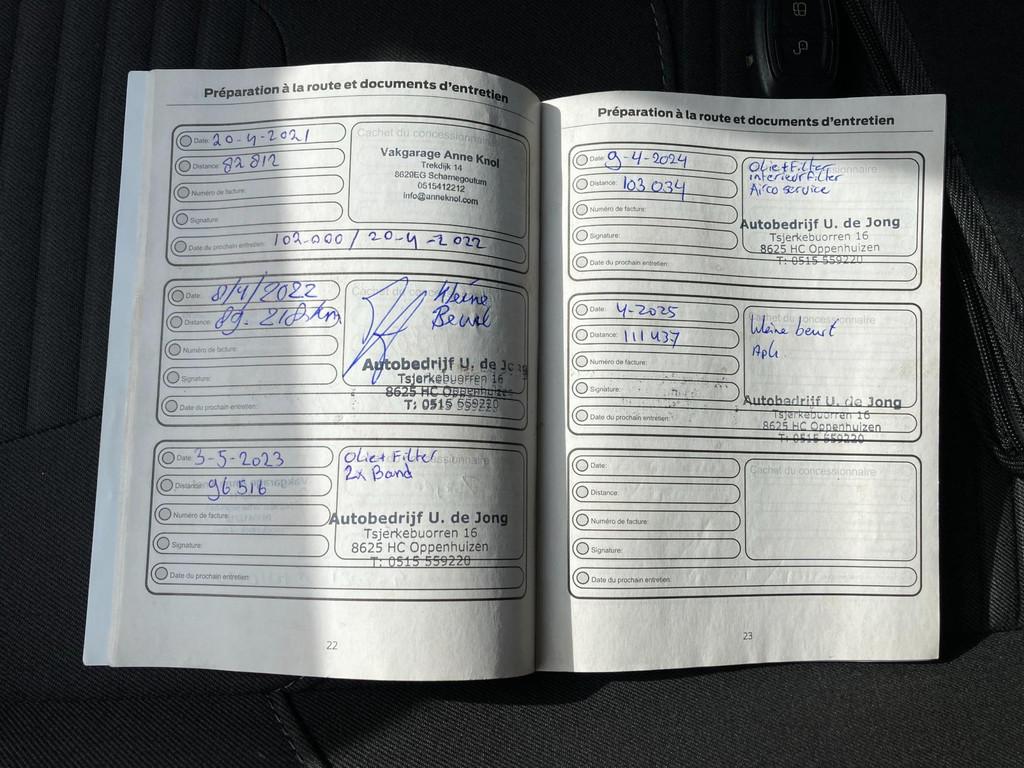 Préparation à la route et documents d'entretien
Date: 20-4-2021
Distance: 82812
Numéro de facture:
Signature:
Date du prochain entretien: 102-000 / 20-4-2022
Cachet du concessionnaire
Vakgarage Anne Knol
Trekdijk 14
8620EG Scharnegoutum
0515412212
info@anneknol.com
Date: 8/4/2022
Distance: 89.218 km
Numéro de facture:
Signature:
Date du prochain entretien:
Cachet du
Kleine
Beurt
Autobedrijf U. de Jong
Tsjerkebuorren 16
8625 HC Oppenhuizen
T: 0515 559220
Date: 3-5-2023
Distance: 96516
Numéro de facture:
Signature:
Date du prochain entretien:
Olie+Filter
2x Band
Autobedrijf U. de Jong
Tsjerkebuorren 16
8625 HC Oppenhuizen
T: 0515 559220
22
Préparation à la route et documents d'entretien
Date: 9-4-2024
Distance: 103034
Numéro de facture:
Signature:
Date du prochain entretien:
Olie+Filter
interieurfilter
Airco service
Autobedrijf U. de Jong
Tsjerkebuorren 16
8625 HC Oppenhuizen
T: 0515 559220
Date: 4-2025
Distance: 111437
Numéro de facture:
Signature:
Date du prochain entretien:
Cachet du concessionnaire
Kleine beurt
Apk
Autobedrijf U. de Jong
Tsjerkebuorren 16
8625 HC Oppenhuizen
T: 0515 559220
Date:
Distance:
Numéro de facture:
Signature:
Date du prochain entretien:
Cachet du concessionnaire
23